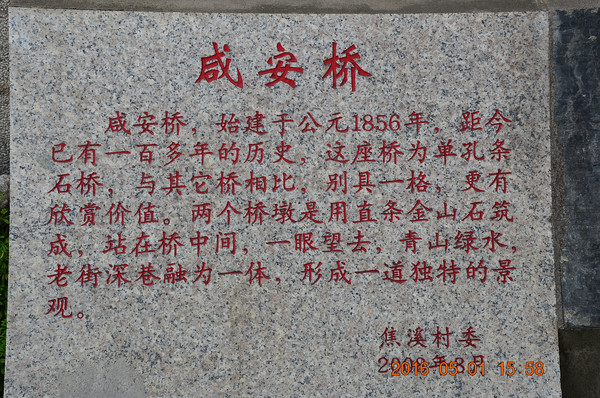 咸安桥
咸安桥，始建于公元1856年，距今
已有一百多年的历史，这座桥为单孔条
石桥，与其它桥相比，别具一格，更有
欣赏价值。两个桥墩是用直条金山石筑
成，站在桥中间，一眼望去，青山绿水，
老街深巷融为一体，形成一道独特的景
观。
焦溪村委
2008年8月
2016 05 01 15:58